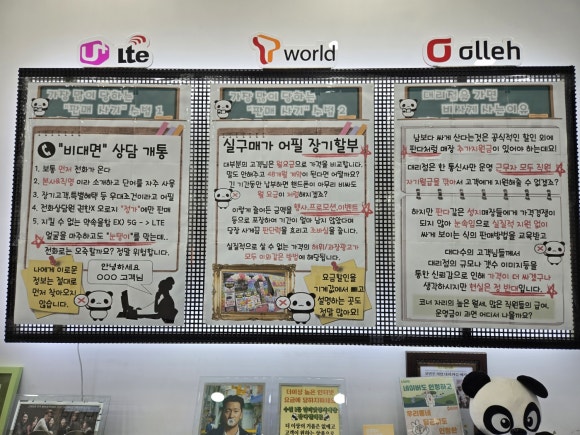 U+ LTE
T world
olleh
가장 많이 당하는
"판매 사기" 수법 1
"비대면" 상담 개통
1. 보통 먼저 전화가 온다
2. 본사&직영 이라 소개하고 단어를 자주 사용
3. 장기고객,특별혜택 등 우대조건이라고 어필
4. 전화상담원 권한X 오로지 "정가"에만 판매
5. 지킬 수 없는 약속을함 EX) 5G -> LTE
얼굴을 마주하고도 "눈탱이"를 맞는데...
전화로는 오죽할까요? 정말 위험합니다.
나에게 이로운
정보는 절대로
먼저 찾아오지
않습니다.
안녕하세요
OOO 고객님
가장 많이 당하는
"판매 사기" 수법 2
실구매가 어필 장기할부
대부분의 고객님은 월요금으로 가격을 비교합니다.
말도 안하주고 48개월 계약이 된다면 어떨까요?
긴 기간동안 납부하면 핸드폰이 아무리 비싸도
월 요금이 저렴해지겠죠?
이렇게 늘어든 금액을 행사,프로모션,이벤트
등으로 포장하여 기간이 얼마 남지 않았다며
당장 사게끔 판단력을 흐리고 조바심을 줍니다.
실질적으로 살 수 없는 가격의 허위/과장광고가
모두 이와같은 방법에 해당됩니다.
요금할인을
기계값에서 빼고
설명하는 곳도
정말 많아요!
대리점은 가면
비싸게 사는이유
남보다 싸게 산다는것은 공식적인 할인 외에
판다처럼 매장 추가지원금이 있어야 하는데요!
대리점은 한 통신사만 운영 근무자 모두 직원
자기월급을 깎아서 고객에게 지원해줄 수 없겠죠?
하지만 판다 같은 성지매장들에게 가격경쟁이
되지 않아 눈속임으로 실질적 지원 없이
싸게 보이는 식의 판매방법을 교육받고
대다수의 고객님들께서
대리점의 규모나 갯수 이미지등을
통한 신뢰감으로 인해 가격이 더 싸겠구나
생각하지만 현실은 정 반대입니다.
코너 자리의 높은 월세, 많은 직원들의 급여,
운영금이 과연 어디서 나올까요?